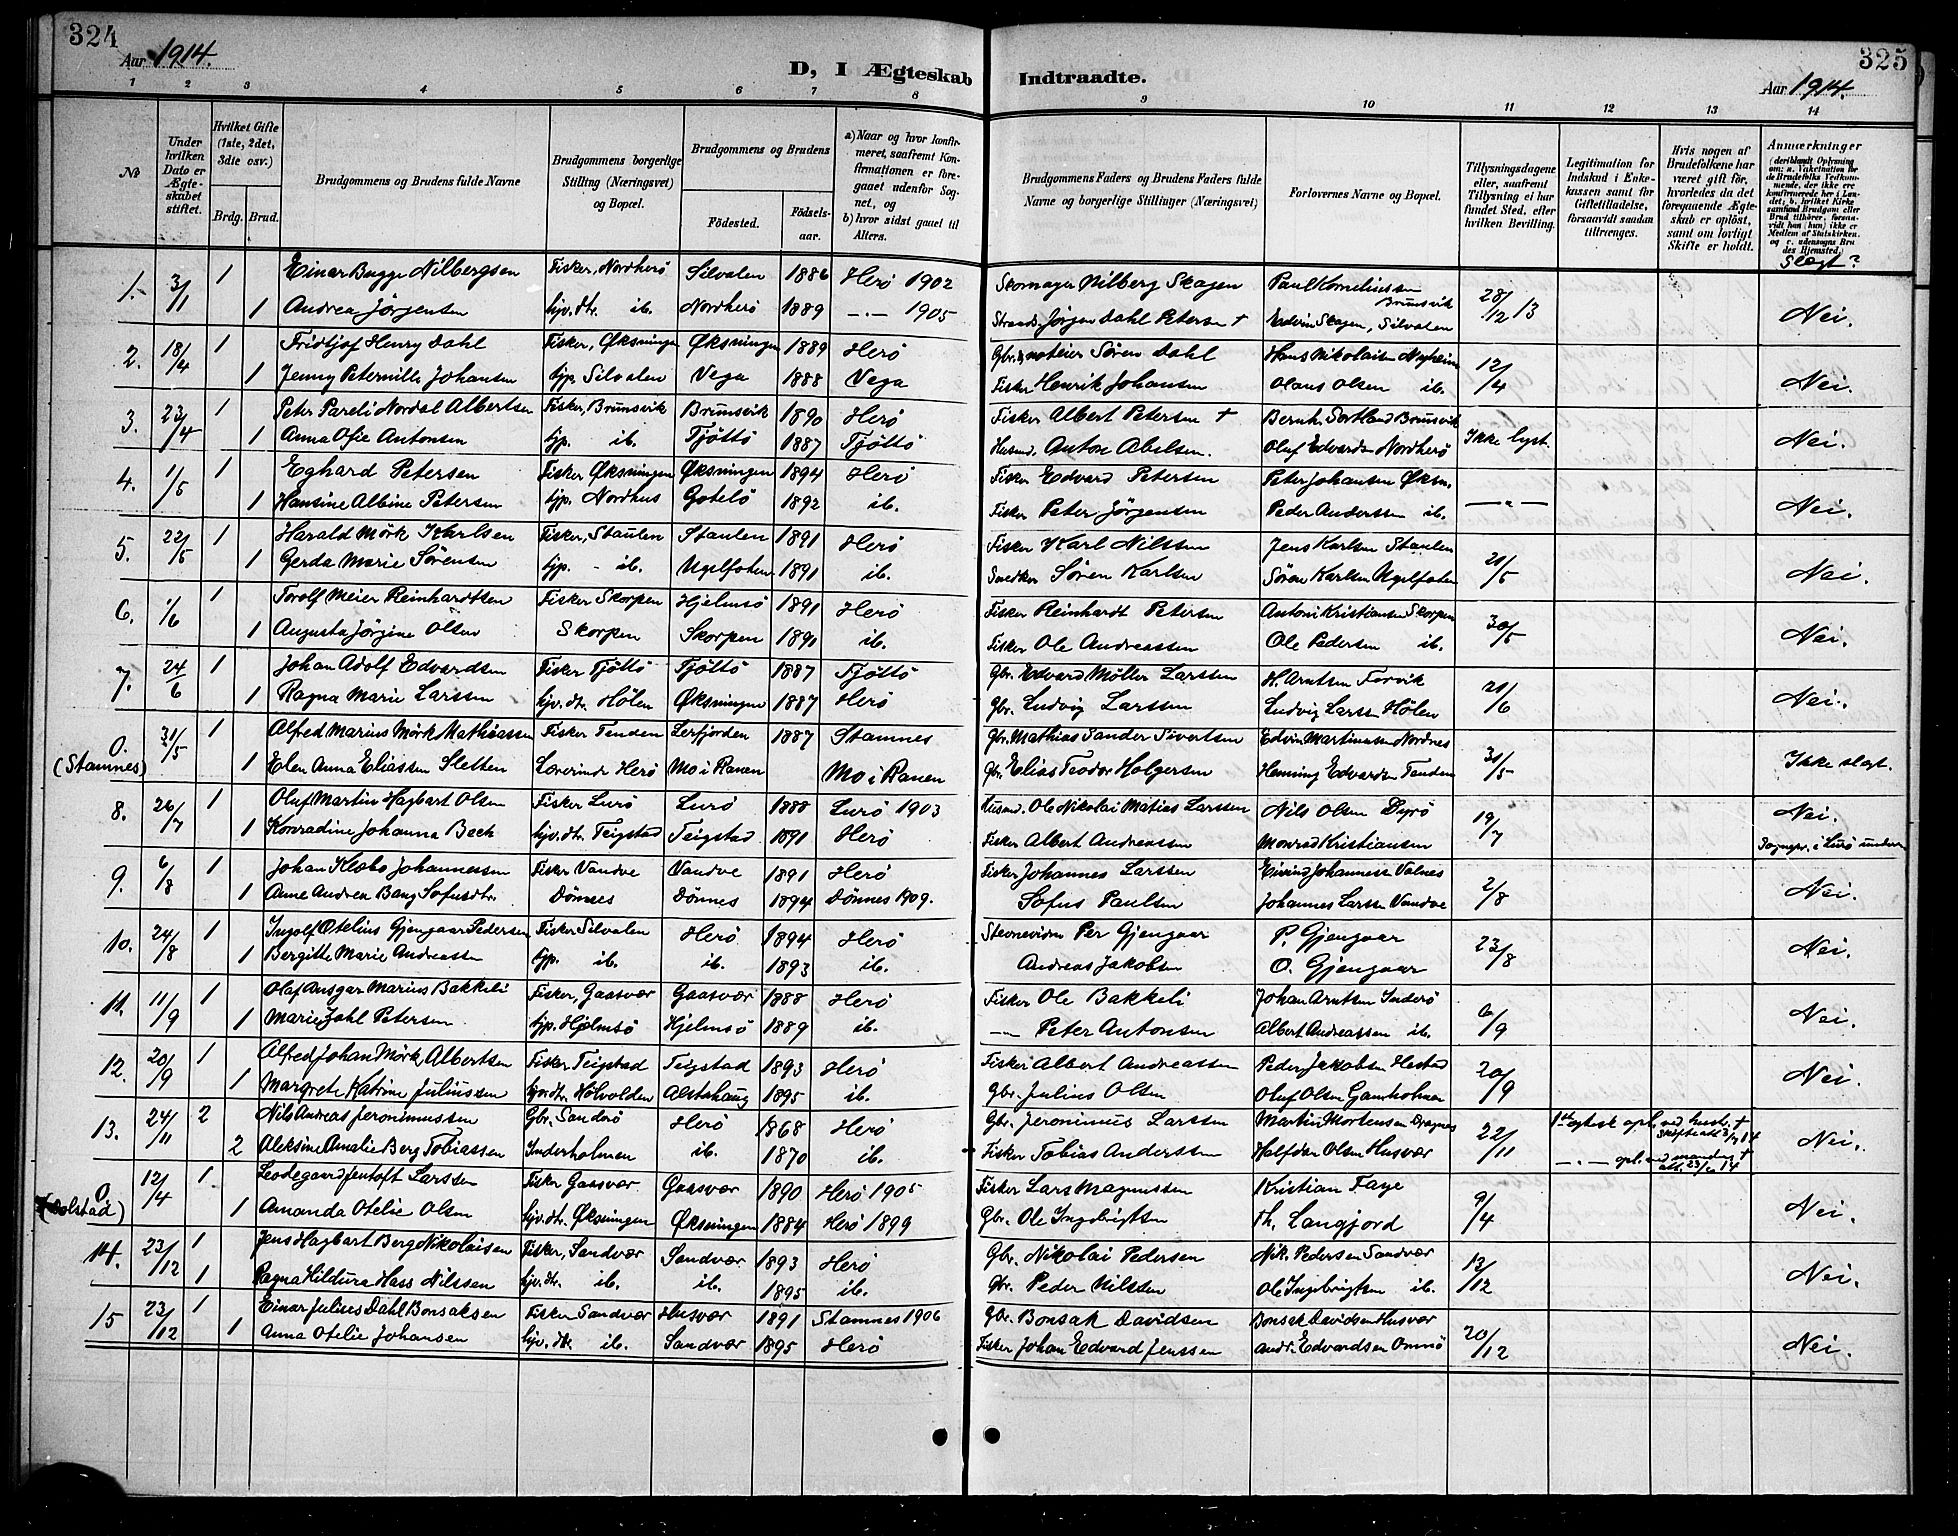 324
Aar 1914.
D, I Ægteskab Indtraadte.
325
Aar 1914.
1 2 3 4 5 6 7 8 9 10 11 12 13 14
No
Under hvilken Dato er Ægteskabet stiftet.
Hvilket Gifte (1ste, 2det, 3die osv.)
Brdg. Brud.
Brudgommens og Brudens fulde Navne
Brudgommens borgerlige Stilling (Næringsvei) og Bopæl.
Brudgommens og Brudens
Fødested. Fødselsaar.
a) Naar og hvor konfirmeret, saafremt Konfirmationen er foregaaet udenfor Sognet, og
b) hvor sidst gaaet til Alters.
Brudgommens Faders og Brudens Faders fulde Navne og borgerlige Stillinger (Næringsvei)
Forlovernes Navne og Bopæl.
Tillysningsdagene eller, saafremt Tillysning ei har fundet Sted, efter hvilken Bevilling.
Legitimation for Indskud i Enkekassen samt for Giftetilladelse, forsaavidt saadan tiltrænges.
Hvis nogen af Brudefolkene har været gift før, hvorledes da det foregaaende Ægteskab er opløst, samt om lovligt Skifte er holdt.
Anmærkninger
Slægt?
1. 3/1 1 Einar Bugge Nilbergsen Fisker, Nordherö Silvalen 1886 Herö 1902 Skomager Nilberg Skagen Paul Korneliussen Brunsvik 28/12 13 Nei.
1 Andrea Jørgensen hjv. dtr. ib. Nordherö 1889 -"- 1905 Strands. Jørgen Dahl Petersen † Edvin Skagen, Silvalen
2. 18/4 1 Fridtjof Henry Dahl Fisker, Øksningen Øksningen 1889 Herö Gbr. & noteier Sören Dahl Hans Nikolaisen Nyheim 12/4 Nei.
1 Jenny Petermille Johansen tjp. Silvalen Vega 1888 Vega Fisker Henrik Johansen Olaus Olsen ib.
3. 23/4 1 Peter Pareli Nordal Albertsen Fisker, Brunsvik Brunsvik 1890 Herö Fisker Albert Petersen † Bernh. Sortland Brunsvik Ikke lyst. Nei.
1 Anna Ofie Antonsen tjp. ib. Tjöttö 1887 Tjöttö Husmd. Anton Abelsen. Oluf Edvardsen Nordherö
4. 1/5 1 Eghard Petersen Fisker Øksningen Øksningen 1894 Herö Fisker Edvard Petersen Peter Johansen Øksn. -"- Nei.
1 Hansine Albine Petersen tjp. Nordhus Gotelö 1892 ib. Fisker Peter Jørgensen Peder Anderssen ib.
5. 22/5 1 Harald Mörk Karlsen Fisker, Staulen Staulen 1891 Herö Fisker Karl Nilssen Jens Karlsen Staulen 21/5 Nei.
1 Gerda Marie Sörensen tjp. - ib. Ugelfoten 1891 ib. Snedker Sören Karlsen Sören Karlsen Ugelfoten
6. 1/6 1 Torolf Meier Reinhardtsen Fisker Skorpen Hjelmsö 1891 Herö Fisker Reinhardt Petersen Anton Kristiansen Skorpen 30/5 Nei.
1 Augusta Jörgine Olsen Skorpen Skorpen 1891 ib. Fisker Ole Andreassen Ole Pedersen ib.
7. 24/6 1 Johan Adolf Edvardsen Fisker Tjöttö Tjöttö 1887 Tjöttö Gbr. Edvard Möller Larssen H. Arntsen Forvik 21/6 Nei.
1 Ragna Marie Larssen hjv. dtr. Hölen Øksningen 1887 Herö Gbr. Ludvig Larssen Ludvig Larssen Hölen
0. (Stamnes) 31/5 1 Alfred Marius Mörk Mathiassen Fisker Tenden Leirfjorden 1887 Stamnes Gbr. Mathias Sander Sivertsen Edvin Martinussen Nordnes 31/5 Ikke slægt.
1 Elen Anna Eliassen Sletten Lærerinde Herö Mo i Ranen Mo i Ranen Gbr. Elias Teodor Holgersen Henning Edvardsen Tenden
8. 26/7 1 Oluf Martin Hagbart Olsen Fisker Lurö Lurö 1888 Lurö 1903 Husmd. Ole Nikolai Matias Larssen Nils Olsen Dyrö 19/7 Nei.
1 Konradine Johanna Bech hjv. dtr. Teigstad Teigstad 1891 Herö Fisker Albert Andreassen Monrad Kristiansen Sognepr. i Lurö
9. 6/8 1 Johan Klæbo Johannessen Fisker Vandve Vandve 1891 Herö Fisker Johannes Larssen Eivind Johannessen Valnes 2/8 Nei.
1 Anne Andrea Bang Sofusdtr. Dönnes Dönnes 1894 Dönnes 1909. Sofus Paulsen Johannes Larssen Vandve
10. 24/8 1 Ingolf Otelius Gjengaar Pedersen Fisker Silvalen Herö 1894 Herö Stevnevidne Per Gjengaar P. Gjengaar 23/8 Nei.
1 Bergitte Marie Andreassen tjp. ib. ib. 1893 ib. Andreas Jakobsen O. Gjengaar
11. 11/9 1 Olaf Ansgar Marius Bakkeli Fisker, Gaasvær Gaasvær 1888 Herö Fisker Ole Bakkeli Johan Arntsen Inderö 6/9 Nei.
1 Marie Dahl Petersen tjp. Hjelmsö Hjelmsö 1889 ib. -"- Peter Antonsen Albert Andreassen ib.
12. 20/9 1 Alfred Johan Mörk Albertsen Fisker Teigstad Teigstad 1893 Herö Fisker Albert Andreassen Peder Jakobsen Hestad 20/9 Nei.
1 Margrete Katrine Juliussen hjv. dtr. Holvolden Alstahaug 1895 ib. Gbr. Julius Olsen Oluf Olsen Gamholmen
13. 24/11 2 Nils Andreas Jeronimussen Gbr. Sanderö Herö 1868 Herö Gbr. Jeronimus Larssen Martin Mortensen Dragnes 22/11 1ste egtesk. opl. ved hustr. † skifteatt. Nei.
2 Aleksine Amalie Berg Tobiassen Inderholmen ib. 1870 ib. Fisker Tobias Anderssen Halfdan Olsen Husvær -"- opl. ved mandens †
0. (Dolstad) 12/4 1 Leodegard Jentoft Larssen Fisker Gaasvær Gaasvær 1890 Herö 1905 Fisker Lars Magnussen Kristian Faye 9/4 Nei.
1 Amanda Otelie Olsen hjv. dtr. Øksningen Øksningen 1884 Herö 1899 Gbr. Ole Ingebrigtsen Th. Langfjord
14. 23/12 1 Jens Hagbart Berg Nikolaisen Fisker, Sandvær Sandvær 1893 Herö Gbr. Nikolai Pedersen Nik. Pedersen Sandvær 13/12 Nei.
1 Ragna Hildura Hass Nilssen hjv. dtr. ib. ib. 1895 ib. Gbr. Peder Nilssen Ole Ingebrigtsen ib.
15 23/12 1 Einar Julius Dahl Bonsaksen Fisker Sandvær Husvær 1891 Stamnes 1906 Gbr. Bonsak Davidsen Bonsak Davidsen Husvær 20/12 Nei.
1 Anna Otelie Johansen hjv. dtr. ib. Sandvær 1895 Herö Fisker Johan Edvard Jenssen Andr. Edvardsen Ommö